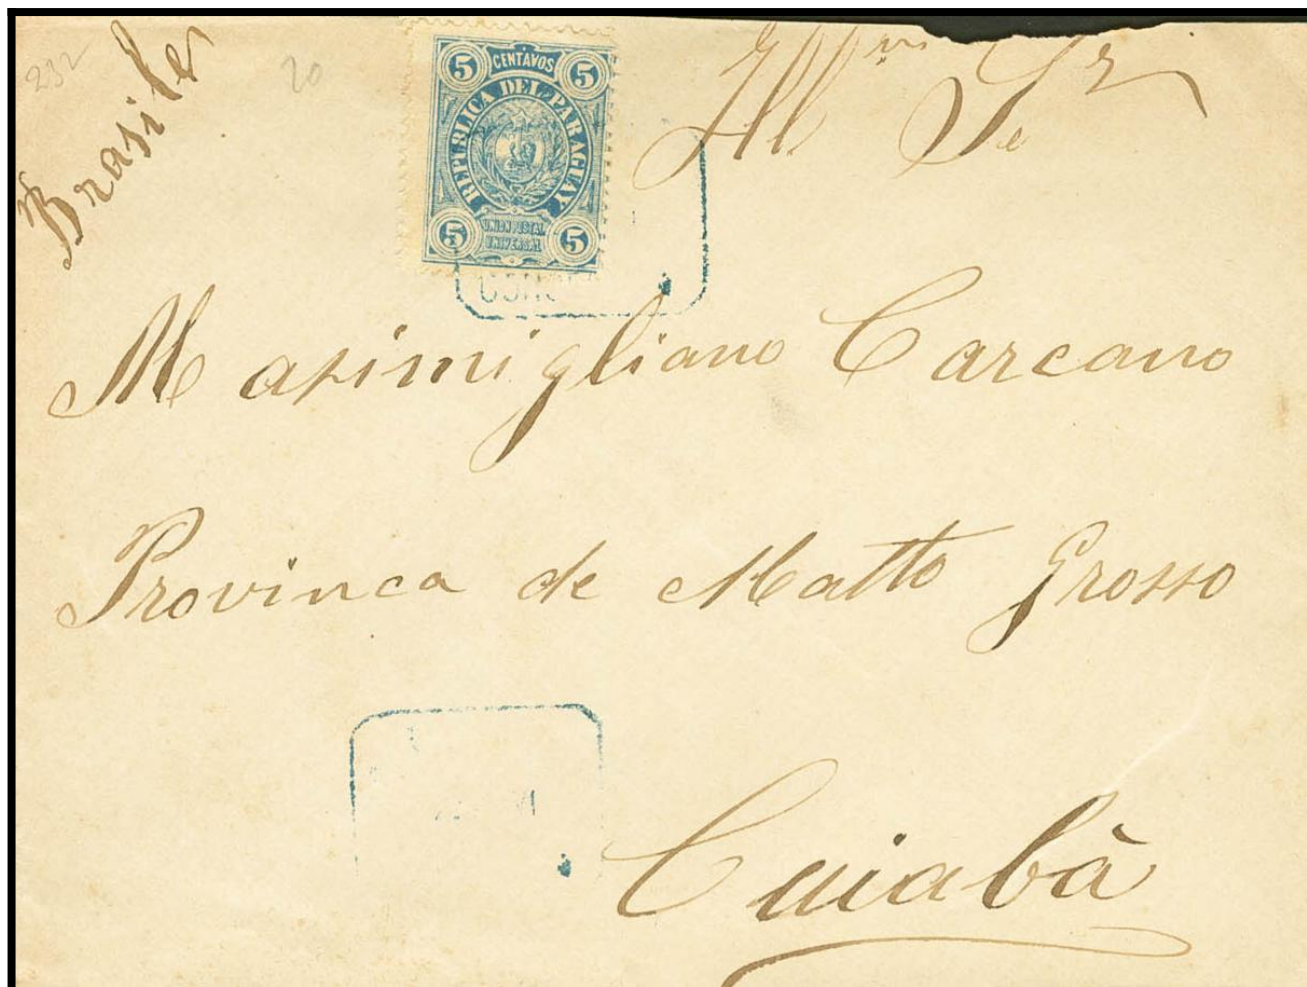 232
20
Brasile
5 CENTAVOS 5
REPUBLICA DEL PARAGUAY
5 UNION POSTAL 5
UNIVERSAL
All Sr
Masimigliano Carcano
Provinca de Matto Grosso
Cuiabà